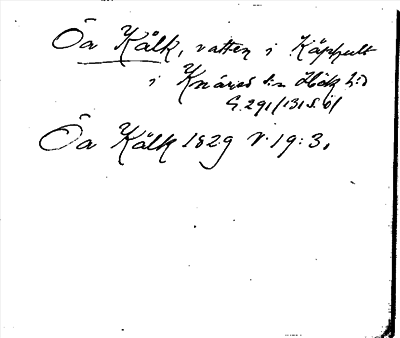 Öa Kålk, vatten i Käphult
i Knäred s:n Hök h:d
G. 291/131 s. 6/
Öa Kålk 1829 V. 19:3.